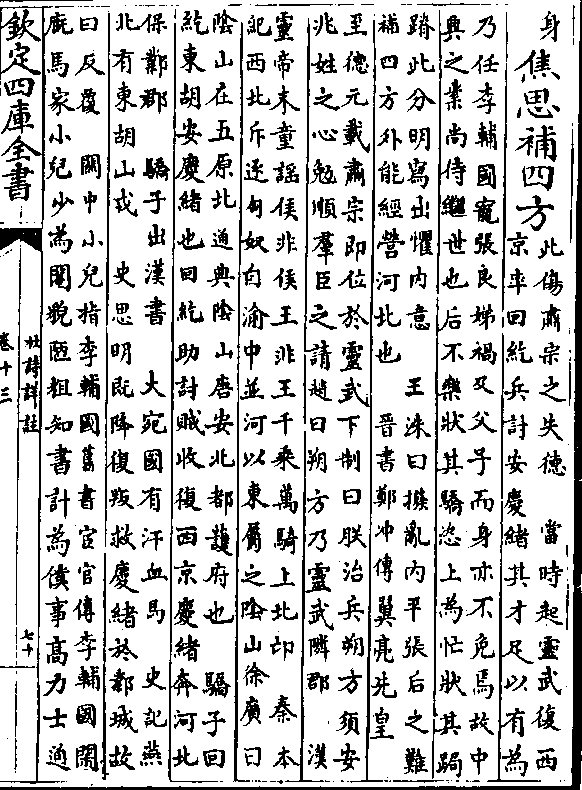 身焦思補四方此傷肅宗之失德　當時起靈武復西
京率回紇兵討安慶緒其才足以有為
乃任李輔國寵張良娣禍及父子而身亦不免焉故中
興之業尚待繼世也后不樂狀其驕恣上為忙狀其跼
蹐此分明寫出懼内意　王洙曰撥亂内平張后之難
補四方外能經營河北也　晉書鄭冲傳翼亮先皇
至德元載肅宗即位於靈武下制曰朕治兵朔方須安
兆姓之心勉順羣臣之請趙曰朔方乃靈武隣郡　漢
靈帝末童謡侯非侯王非王千乘萬騎上北邙　秦本
紀西北斥逐匈奴自渝中並河以東屬之陰山徐廣曰
陰山在五原北通典陰山唐安北都護府也　驕子回
紇東胡安慶緒也回紇助討賊收復西京慶緒奔河北
保鄴郡　驕子出漢書　大宛國有汗血馬　史記燕
北有東胡山戎　史思明既降復叛救慶緒於鄴城故
曰反覆　關中小兒指李輔國舊書宦官傳李輔國閑
廐馬家小兒少為閹貌陋粗知書計為僕事高力士通
欽定四庫全書
杜詩詳註
卷十三
七十